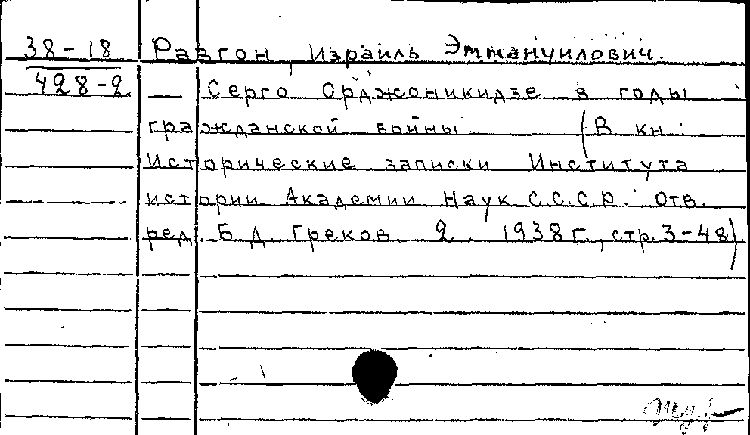 38-18 Разгон, Израиль Эммануилович.
428-2 — Серго Орджоникидзе в годы
гражданской войны (В кн.:
Исторические записки Института
истории Академии Наук С.С.С.Р. Отв.
ред. Б.Д. Греков 2 1938 г., стр. 3-48)